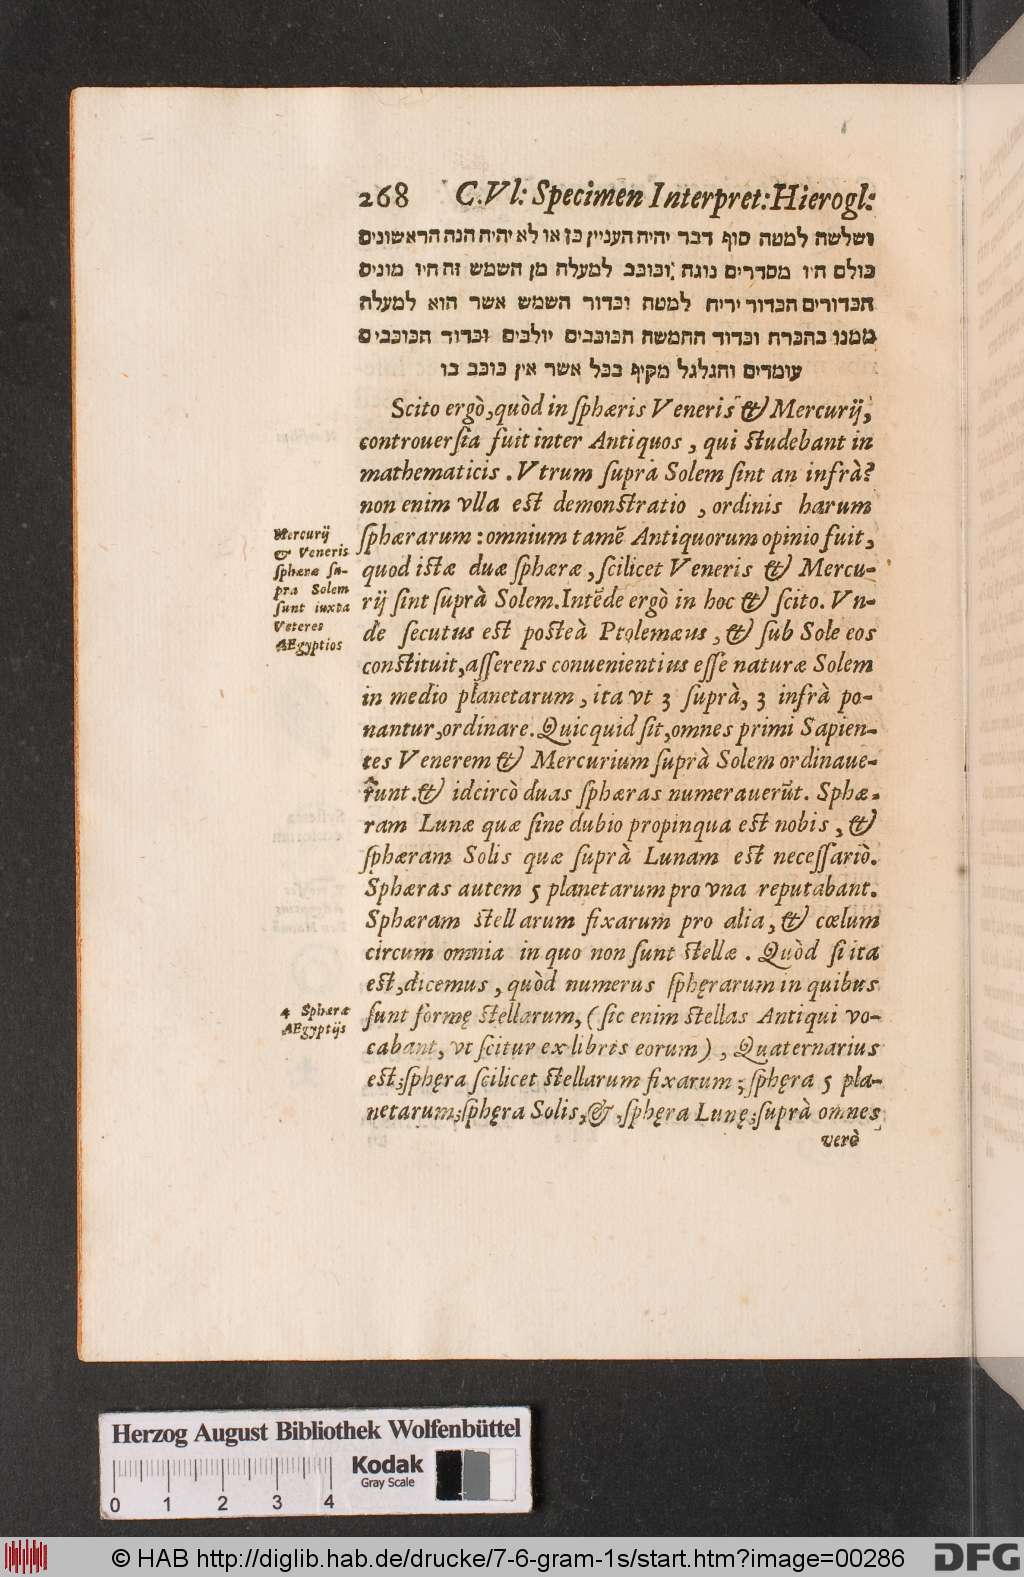 268 C.Vl: Specimen Interpret: Hierogl:
ושלשה למטה סוף דבר יהיה העניין כן או לא יהיה הנה הראשונים
כולם היו מסדרים נוגה וכוכב למעלה מן השמש זה היו מונים
הכדורים הכדור ירית למטה וכדור השמש אשר הוא למעלה
ממנו בהכרח וכדוד החמשה הכוכבים יולכים וכדוד הכוכבים
עומדים והגלגל מקיף בכל אשר אין כוכב בו
Scito ergò, quòd in sphæris Veneris & Mercurij,
controuersia fuit inter Antiquos, qui studebant in
mathematicis. Vtrum suprà Solem sint an infrà?
non enim vlla est demonstratio, ordinis harum
sphærarum: omnium tamẽ Antiquorum opinio fuit,
quod istæ duæ sphæræ, scilicet Veneris & Mercu-
rij sint suprà Solem. Intẽde ergò in hoc & scito. Vn-
de secutus est posteà Ptolemæus, & sub Sole eos
constituit, asserens conuenientius esse naturæ Solem
in medio planetarum, ita vt 3 suprà, 3 infrà po-
nantur, ordinare. Quicquid sit, omnes primi Sapien-
tes Venerem & Mercurium suprà Solem ordinaue-
runt. & idcircò duas sphæras numerauerũt. Sphæ-
ram Lunæ quæ sine dubio propinqua est nobis, &
sphæram Solis quæ suprà Lunam est necessariò.
Sphæras autem 5 planetarum pro vna reputabant.
Sphæram stellarum fixarum pro alia, & cœlum
circum omnia in quo non sunt stellæ. Quòd si ita
est, dicemus, quòd numerus sphęrarum in quibus
sunt formę stellarum, (sic enim stellas Antiqui vo-
cabant, vt scitur ex libris eorum), Quaternarius
est; sphęra scilicet stellarum fixarum; sphęra 5 pla-
netarum; sphęra Solis, &, sphęra Lunę; suprà omnes
verò
Mercurij
& Veneris
sphæræ su-
pra Solem
sunt iuxta
Veteres
AEgyptios
4 Sphæræ
AEgyptijs
Herzog August Bibliothek Wolfenbüttel
Kodak
Gray Scale
0 1 2 3 4
© HAB http://diglib.hab.de/drucke/7-6-gram-1s/start.htm?image=00286
DFG